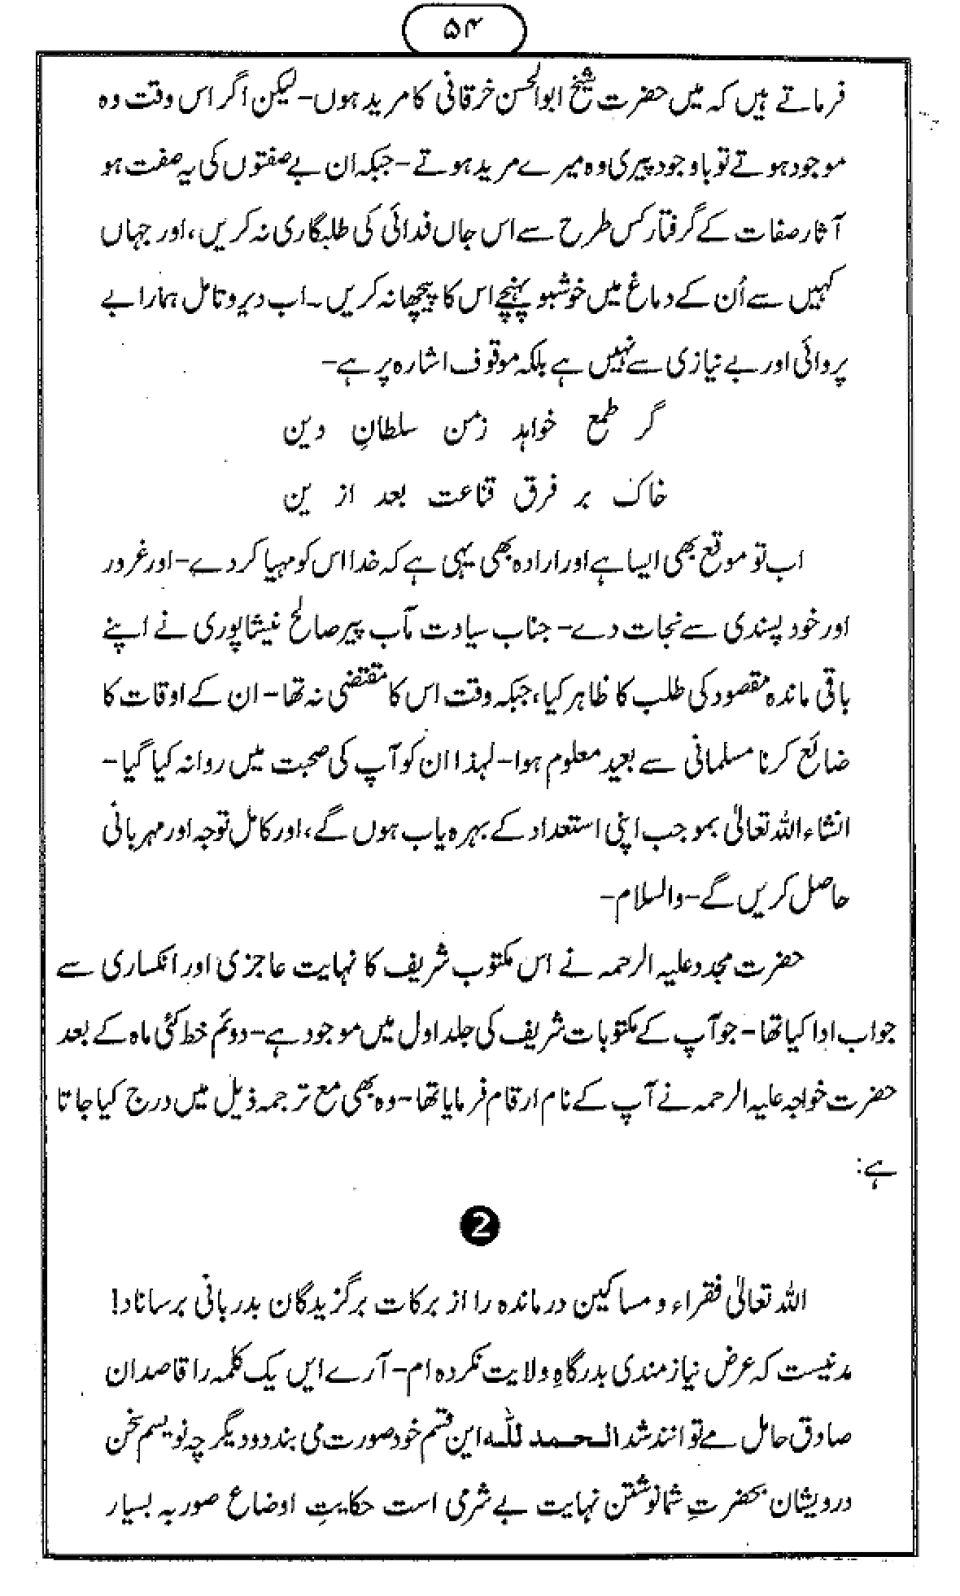 ۵۴
فرماتے ہیں کہ میں حضرت شیخ ابوالحسن خرقانی کا مرید ہوں- لیکن اگر اس وقت وہ
موجود ہوتے تو باوجود پیری وہ میرے مرید ہوتے- جبکہ ان بے صفتوں کی یہ صفت ہو
آثار صفات کے گرفتار کس طرح سے اس جاں فدائی کی طلبگاری نہ کریں، اور جہاں
کہیں سے اُن کے دماغ میں خوشبو پہنچے اس کا پیچھا نہ کریں۔ اب دیر و تامل ہمارا بے
پروائی اور بے نیازی سے نہیں ہے بلکہ موقوف اشارہ پر ہے-
گر طمع خواہد زمن سلطانِ دین
خاک بر فرق قناعت بعد از ین
اب تو موقع بھی ایسا ہے اور ارادہ بھی یہی ہے کہ خدا اس کو مہیا کر دے- اور غرور
اور خود پسندی سے نجات دے- جناب سیادت مآب پیر صالح نیشاپوری نے اپنے
باقی ماندہ مقصود کی طلب کا ظاہر کیا، جبکہ وقت اس کا مقتضی نہ تھا- ان کے اوقات کا
ضائع کرنا مسلمانی سے بعید معلوم ہوا- لہذا ان کو آپ کی صحبت میں روانہ کیا گیا-
انشاء اللہ تعالیٰ بموجب اپنی استعداد کے بہرہ یاب ہوں گے، اور کامل توجہ اور مہربانی
حاصل کریں گے- والسلام-
حضرت مجدد علیہ الرحمہ نے اس مکتوب شریف کا نہایت عاجزی اور انکساری سے
جواب ادا کیا تھا- جو آپ کے مکتوبات شریف کی جلد اول میں موجود ہے- دوئم خط کئی ماہ کے بعد
حضرت خواجہ علیہ الرحمہ نے آپ کے نام ارقام فرمایا تھا- وہ بھی مع ترجمہ ذیل میں درج کیا جاتا
ہے:
2
اللہ تعالیٰ فقراء و مساکین درماندہ را از برکات برگزیدگان بدربانی برساناد!
مدنیست کہ عرض نیازمندی بدرگاہِ ولایت نکردہ ام- آرے ایں یک کلمہ را قاصدان
صادق حامل مے توانند شد الحمد للہ این قسم خود صورت می بندد و دیگر چہ نویسم سخن
درویشان بحضرتِ شما نوشتن نہایت بے شرمی است حکایتِ اوضاع صوریہ بسیار